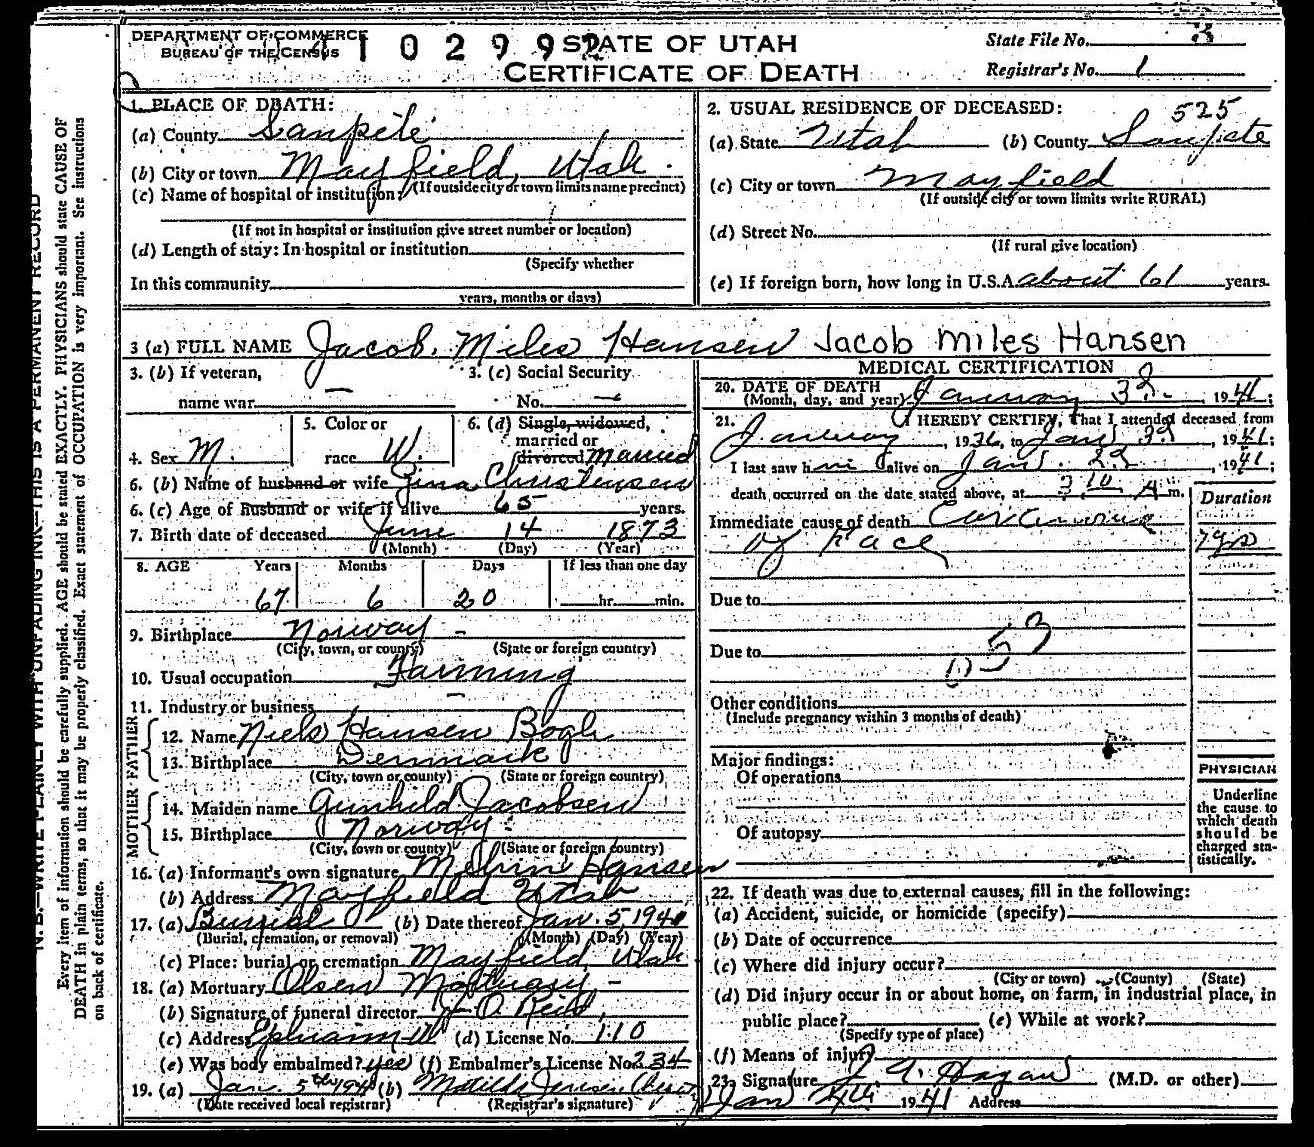 DEPARTMENT OF COMMERCE
BUREAU OF THE CENSUS
41 0 2 9 9 2
STATE OF UTAH
CERTIFICATE OF DEATH
State File No. 3
Registrar's No. 1
1. PLACE OF DEATH:
(a) County Sanpete
(b) City or town Mayfield, Utah.
(If outside city or town limits name precinct)
(c) Name of hospital or institution:
(If not in hospital or institution give street number or location)
(d) Length of stay: In hospital or institution
(Specify whether
In this community
years, months or days)
2. USUAL RESIDENCE OF DECEASED: 525
(a) State Utah (b) County Sanpete
(c) City or town Mayfield
(If outside city or town limits write RURAL)
(d) Street No.
(If rural give location)
(e) If foreign born, how long in U.S.A about 61 years.
3 (a) FULL NAME Jacob. Miles Hansen Jacob Miles Hansen
3. (b) If veteran, 3. (c) Social Security
name war — No. —
4. Sex M.
5. Color or
race W.
6. (d) Single, widowed,
married or
divorced married
6. (b) Name of husband or wife Gina Christensen
6. (c) Age of husband or wife if alive 65 years.
7. Birth date of deceased June 14 1873
(Month) (Day) (Year)
8. AGE Years Months Days If less than one day
67 6 20 hr. min.
9. Birthplace Norway -
(City, town, or county) (State or foreign country)
10. Usual occupation Farming
11. Industry or business —
FATHER
12. Name Niels Hansen Bogh
13. Birthplace Denmark
(City, town or county) (State or foreign country)
MOTHER
14. Maiden name Gunhild Jacobsen
15. Birthplace Norway
(City, town or county) (State or foreign country)
16. (a) Informant's own signature Melvin Hansen
(b) Address Mayfield Utah
17. (a) Burrial (b) Date thereof Jan. 5, 1940
(Burial, cremation, or removal) (Month) (Day) (Year)
(c) Place: burial or cremation Mayfield, Utah
18. (a) Mortuary Olsen Mortuary -
(b) Signature of funeral director
(c) Address Ephraim U (d) License No. 110
(e) Was body embalmed? yes (f) Embalmer's License No. 234
19. (a) Jan. 5th 1941 (b) Matilda Jensen
(Date received local registrar) (Registrar's signature)
MEDICAL CERTIFICATION
20. DATE OF DEATH
(Month, day, and year) January 3, 1941;
21. I HEREBY CERTIFY, That I attended deceased from
January, 1936, to Jan 3, 1941;
I last saw him alive on Jan. 1941;
death occurred on the date stated above, at 3 10 A m.
Duration
Immediate cause of death
of face
Due to
Due to
053
Other conditions
(Include pregnancy within 3 months of death)
Major findings:
Of operations
Of autopsy
PHYSICIAN
Underline
the cause to
which death
should be
charged sta-
tistically.
22. If death was due to external causes, fill in the following:
(a) Accident, suicide, or homicide (specify)
(b) Date of occurrence
(c) Where did injury occur?
(City or town) (County) (State)
(d) Did injury occur in or about home, on farm, in industrial place, in
public place? (e) While at work?
(Specify type of place)
(f) Means of injury
23. Signature J. A. Hagan (M.D. or other)
Jan 4th 1941 Address
N.B.—WRITE PLAINLY WITH UNFADING INK—THIS IS A PERMANENT RECORD
Every item of information should be carefully supplied. AGE should be stated EXACTLY. PHYSICIANS should state CAUSE OF
DEATH in plain terms, so that it may be properly classified. Exact statement of OCCUPATION is very important. See instructions
on back of certificate.